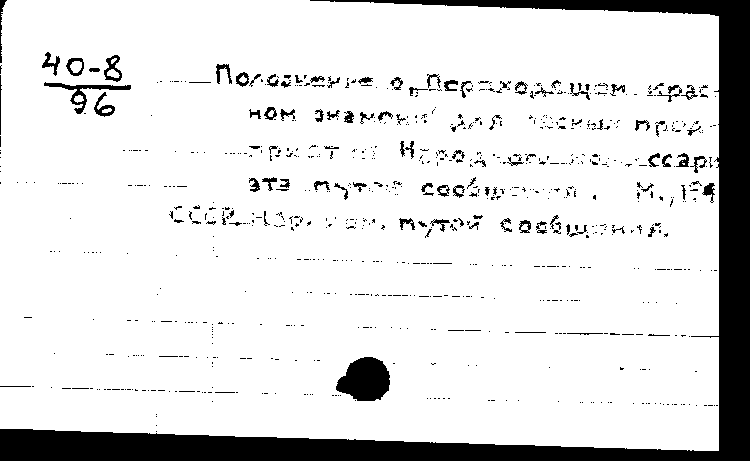 40-8
96
Положение о „Переходящем крас-
ном знамени" для лесных пред-
приятий Народного комиссари
ата путей сообщения. М., 194
СССР. Нар. ком. путей сообщения.